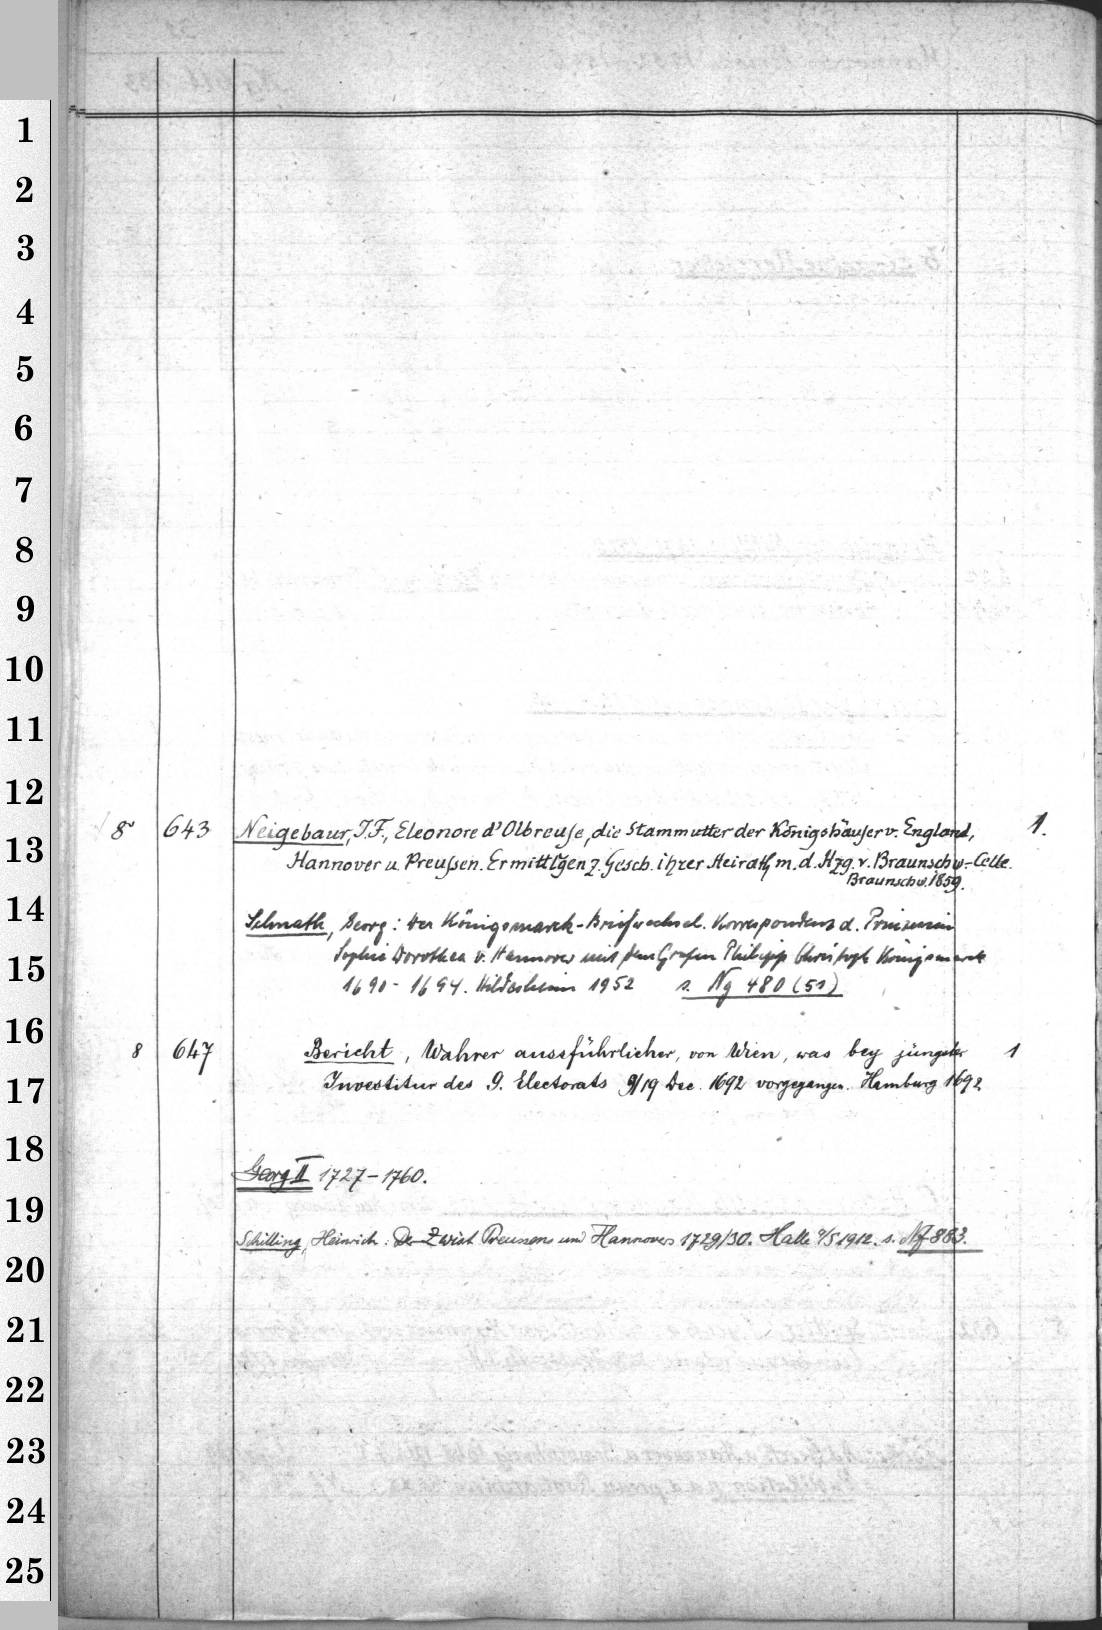 1
2
3
4
5
6
7
8
9
10
11
12
8° 643 Neigebaur, J.F., Eleonore d'Olbreuse, die Stammutter der Königshäuser v. England, 1.
13
Hannover u. Preußen. Ermittlgen z. Gesch. ihrer Heirath m. d. Hzg. v. Braunschw.-Celle.
Braunschw. 1859.
14
Schnath, Georg: Der Königsmarck-Briefwechsel. Korrespondenz d. Prinzessin
15
Sophie Dorothea v. Hannover mit dem Grafen Philipp Christoph Königsmarck
1690-1694. Hildesheim 1952 s. Ng 480 (51)
16
8 647 Bericht, Wahrer aussführlicher, von Wien, was bey jüngster 1
17
Investitur des 9. Electorats 9/19 Dec. 1692 vorgegangen. Hamburg 1692
18
Georg II 1727-1760.
19
Schilling, Heinrich: Der Zwist Preussens und Hannovers 1729/30. Halle a/S 1912. s. Nf 883.
20
21
22
23
24
25